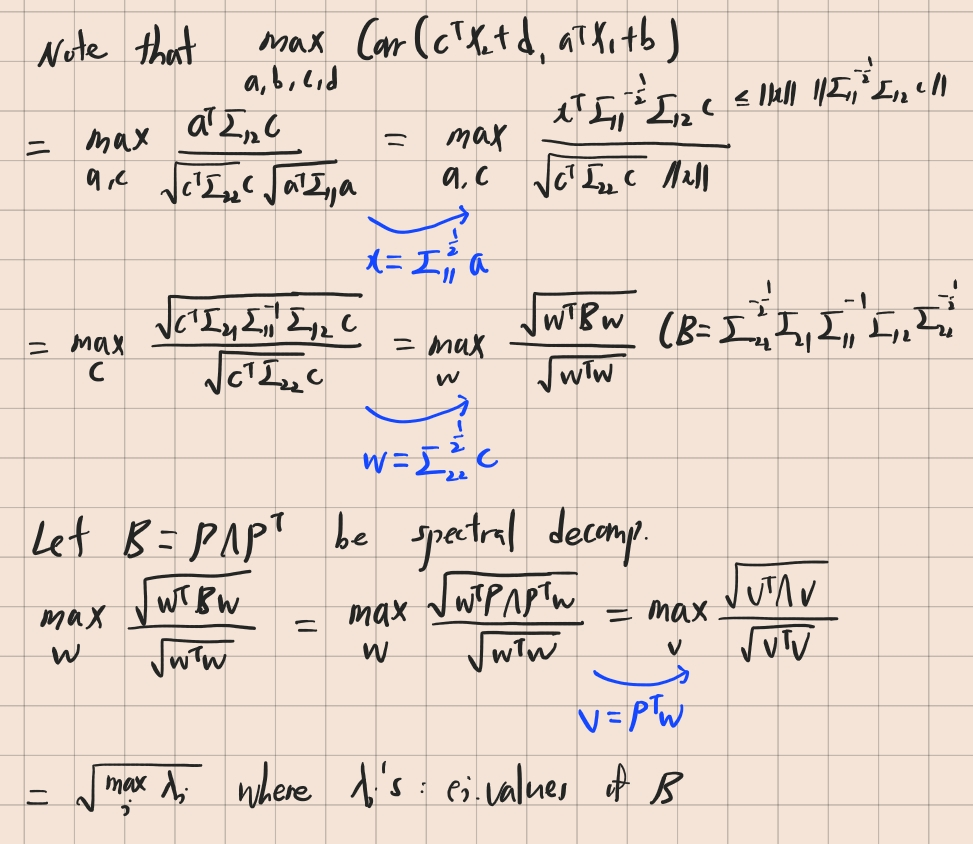 Note that max_{a,b,c,d} Corr(cᵀX₂+d, aᵀX₁+b)
= max_{a,c} \frac{aᵀΣ₁₂c}{\sqrt{cᵀΣ₂₂c} \sqrt{aᵀΣ₁₁a}} = max_{a,c} \frac{xᵀΣ₁₁^{-1/2}Σ₁₂c}{\sqrt{cᵀΣ₂₂c} ‖x‖} ≤ ‖x‖ ‖Σ₁₁^{-1/2}Σ₁₂c‖
x = Σ₁₁^{1/2} a
= max_c \frac{\sqrt{cᵀΣ₂₁Σ₁₁^{-1}Σ₁₂c}}{\sqrt{cᵀΣ₂₂c}} = max_w \frac{\sqrt{wᵀBw}}{\sqrt{wᵀw}} (B = Σ₂₂^{-1/2}Σ₂₁Σ₁₁^{-1}Σ₁₂Σ₂₂^{-1/2}
w = Σ₂₂^{1/2} c
Let B = PΛPᵀ be spectral decomp.
max_w \frac{\sqrt{wᵀBw}}{\sqrt{wᵀw}} = max_w \frac{\sqrt{wᵀPΛPᵀw}}{\sqrt{wᵀw}} = max_v \frac{\sqrt{vᵀΛv}}{\sqrt{vᵀv}}
v = Pᵀw
= \sqrt{max_j λ_j} where λ_j's : ei.values of B